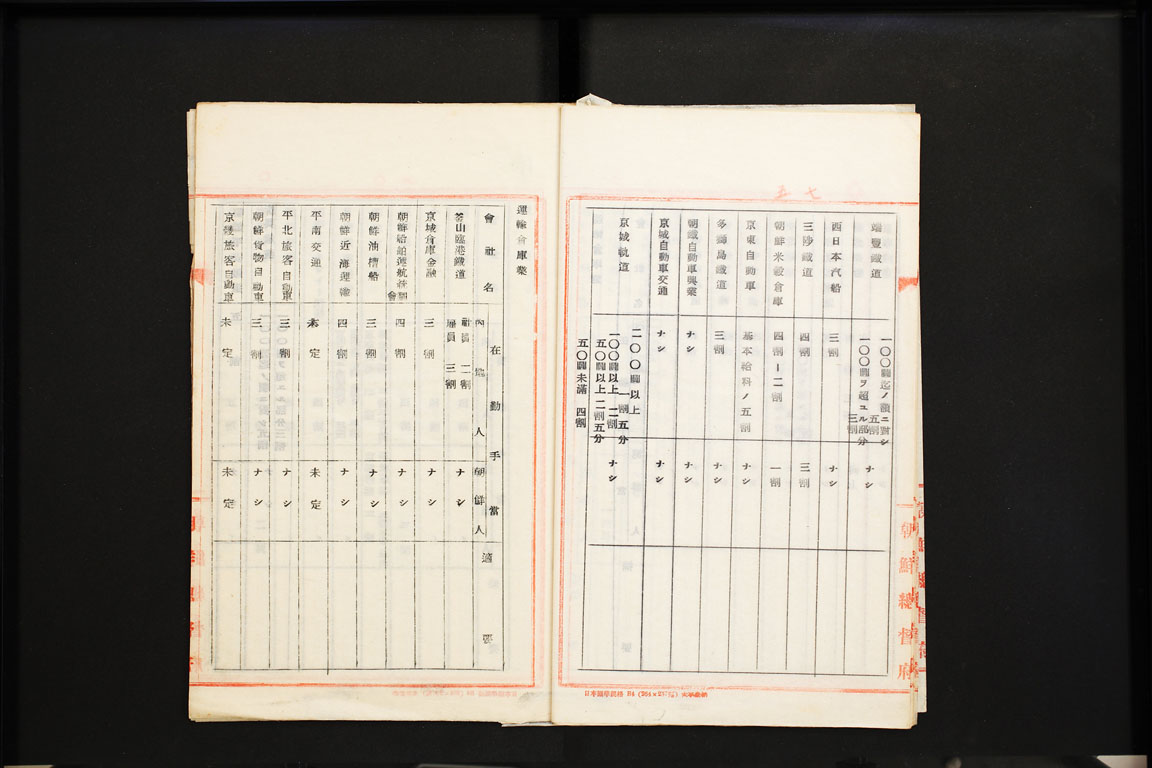 七五
端豊鐵道
一〇〇圓迄ノ額ニ對シ
五割
一〇〇圓ヲ超ユル部分
三割
ナシ
西日本汽船
三割
ナシ
三陟鐵道
四割
三割
朝鮮米穀倉庫
四割ー二割
一割
京東自動車
基本給料ノ五割
ナシ
多獅島鐵道
三割
ナシ
朝鐵自動車興業
ナシ
ナシ
京城自動車交通
ナシ
ナシ
京城軌道
二〇〇圓以上
一割五分
一〇〇圓以上 二割
五〇圓以上 二割五分
五〇圓未滿 四割
ナシ
朝鮮總督府
運輸倉庫業
會社名
在勤手當
內地人
朝鮮人
摘要
釜山臨港鐵道
社員 二割
雇員 三割
ナシ
京城倉庫金融
三割
ナシ
朝鮮船舶運航統制會
四割
ナシ
朝鮮油槽船
三割
ナシ
朝鮮近海運輸
四割
ナシ
平南交通
未定
未定
平北旅客自動車
三割
ナシ
朝鮮貨物自動車
三割
ナシ
京畿旅客自動車
未定
未定